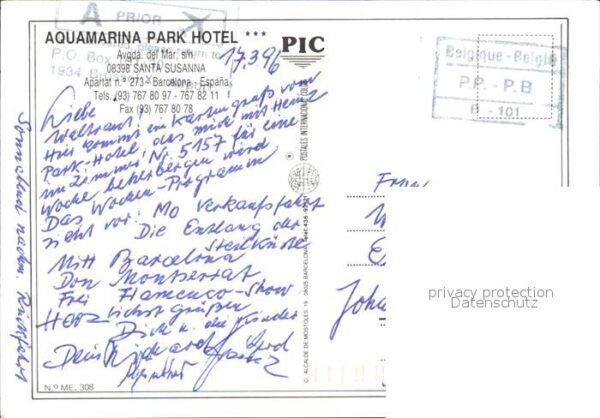 A
PRIOR
AQUAMARINA PARK HOTEL ***
P.O. Box
1934 B
Avgda. del Mar, s/n.
08398 SANTA SUSANNA
Apartat n.º 273 - Barcelona - España
Tels. (93) 767 80 97 - 767 82 11
Fax (93) 767 80 78
17.3.96
PIC
Belgique - België
P.P. - P.B
B - 101
Liebe
Waltraut!
Hier kommt ein Kartengruß vom
Park-Hotel, das mich mit Heinz
im Zimmer Nr. 5157 für eine
Woche beherbergen wird.
Das Wochen-Programm
sieht vor: MO Verkaufsfahrt
Die Entlang der
Steilküste
Mitt Barcelona
Don Montserrat
Frei Flamenco-Show
Herzlichst grüßen
Dich u. die Kinder
Dein Richard und
Heinz
Sonnabend nachm. Rückfahrt
POSTALES INTERNACIONALES COLOR
C. ALCALDE DE MOSTOLES, 19 - 08025 BARCELONA
N.º ME. 308
privacy protection
Datenschutz